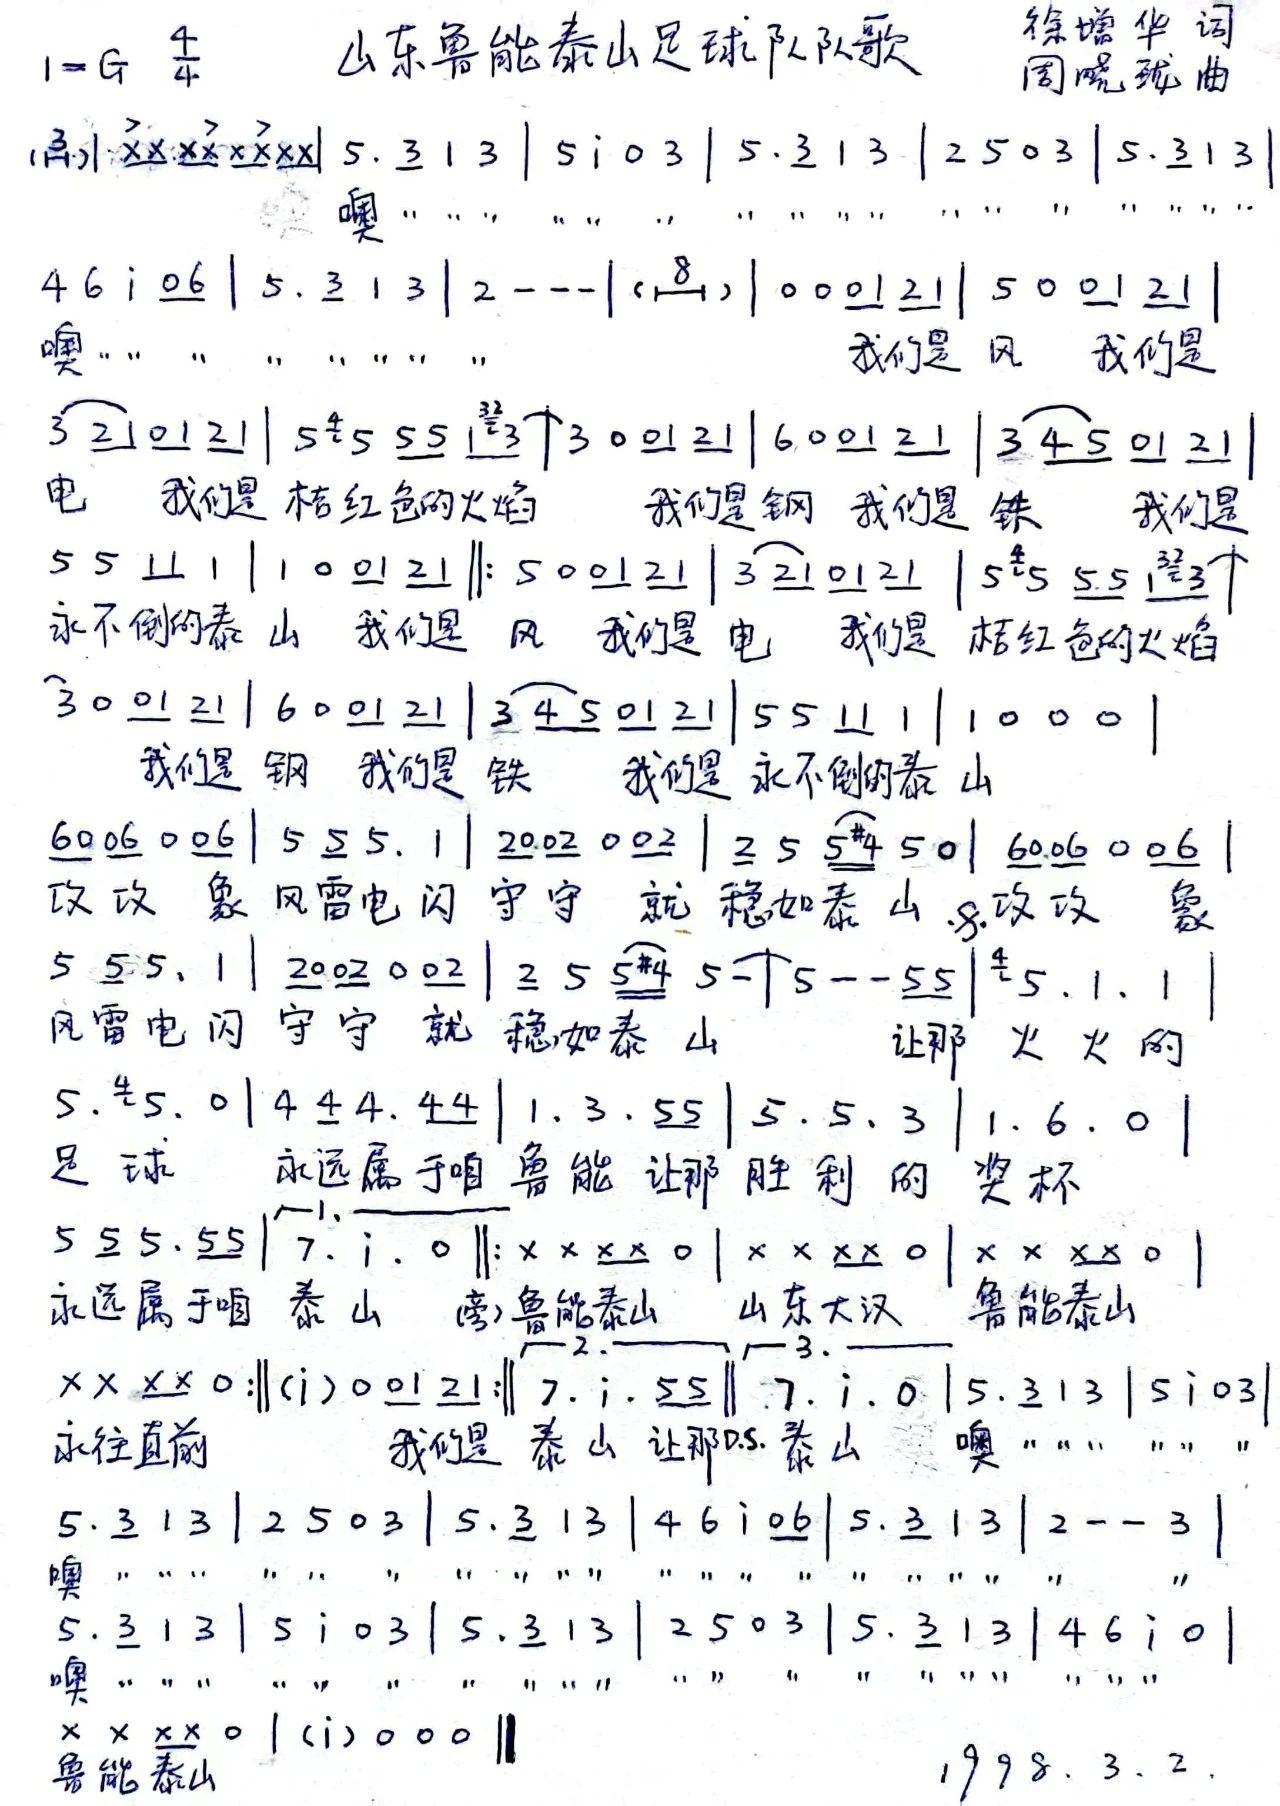 1=G 4/4 山东鲁能泰山足球队队歌 徐增华 词
周晓珑 曲
(3)| xx xx xx xx | 5. 3 1 3 | 5 i 0 3 | 5. 3 1 3 | 2 5 0 3 | 5. 3 1 3 |
噢 " " " " " " " " " " " " " " " " "
4 6 i 06 | 5. 3 1 3 | 2 - - - | (8) | 0 0 01 21 | 5 0 01 21 |
噢 " " " " " " " " 我们是 风 我们是
3 21 01 21 | 5 4 5 55 1 32 3 | 3 0 01 21 | 6 0 01 21 | 3 45 01 21 |
电 我们是 桔红色的火焰 我们是钢 我们是 铁 我们是
5 5 11 1 | 1 0 01 21 ‖: 5 0 01 21 | 3 21 01 21 | 5 4 5 5.5 1 32 3 |
永不倒的泰 山 我们是 风 我们是 电 我们是 桔红色的火焰
3 0 01 21 | 6 0 01 21 | 3 45 01 21 | 5 5 11 1 | 1 0 0 0 |
我们是 钢 我们是 铁 我们是 永不倒的泰 山
60 06 0 06 | 5 5 5. 1 | 20 02 0 02 | 2 5 5#4 5 0 | 60 06 0 06 |
攻 攻 象 风雷电 闪 守 守 就 稳如泰 山 .S. 攻 攻 象
5 5 5. 1 | 20 02 0 02 | 2 5 5#4 5 - | 5 - - 55 | 4 5. 1. 1 |
风雷电 闪 守 守 就 稳如泰 山 让那 火 火 的
5. 4 5. 0 | 4 4 4. 44 | 1. 3. 55 | 5. 5. 3 | 1. 6. 0 |
足 球 永远属于咱 鲁 能 让那 胜 利 的 奖 杯
5 5 5. 55 | 1. 7. i. 0 ‖: x x xx 0 | x x xx 0 | x x xx 0 |
永远属于咱 泰 山 (旁)鲁能泰山 山东大汉 鲁能泰山
x x xx 0 :‖ (i) 0 01 21 :‖ 2. 7. i. 55 ‖ 3. 7. i. 0 | 5. 3 1 3 | 5 i 0 3 |
永往直前 我们是 泰 山 让那D.S. 泰 山 噢 " " " " " "
5. 3 1 3 | 2 5 0 3 | 5. 3 1 3 | 4 6 i 06 | 5. 3 1 3 | 2 - - 3 |
噢 " " " " " " " " " " " " " " " " " " " "
5. 3 1 3 | 5 i 0 3 | 5. 3 1 3 | 2 5 0 3 | 5. 3 1 3 | 4 6 i 0 |
噢 " " " " " " " " " " " " " " " " " " " "
x x xx 0 | (i) 0 0 0 ‖
鲁能泰山 1998.3.2.